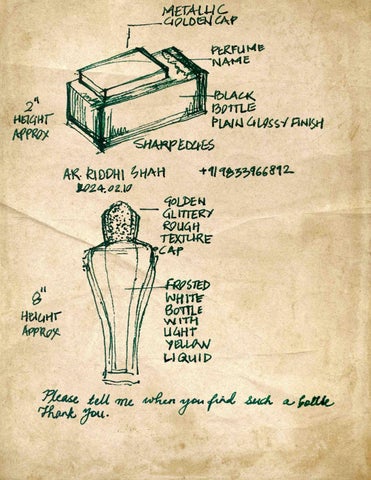 METALLIC
GOLDEN CAP
PERFUME
NAME
2"
HEIGHT
APPROX
BLACK
BOTTLE
PLAIN GLOSSY FINISH
SHARP EDGES
AR. RIDDHI SHAH +919833966892
2024.02.10
GOLDEN
GLITTERY
ROUGH
TEXTURE
CAP
8"
HEIGHT
APPROX
FROSTED
WHITE
BOTTLE
WITH
LIGHT
YELLOW
LIQUID
Please tell me when you find such a bottle
Thank you.